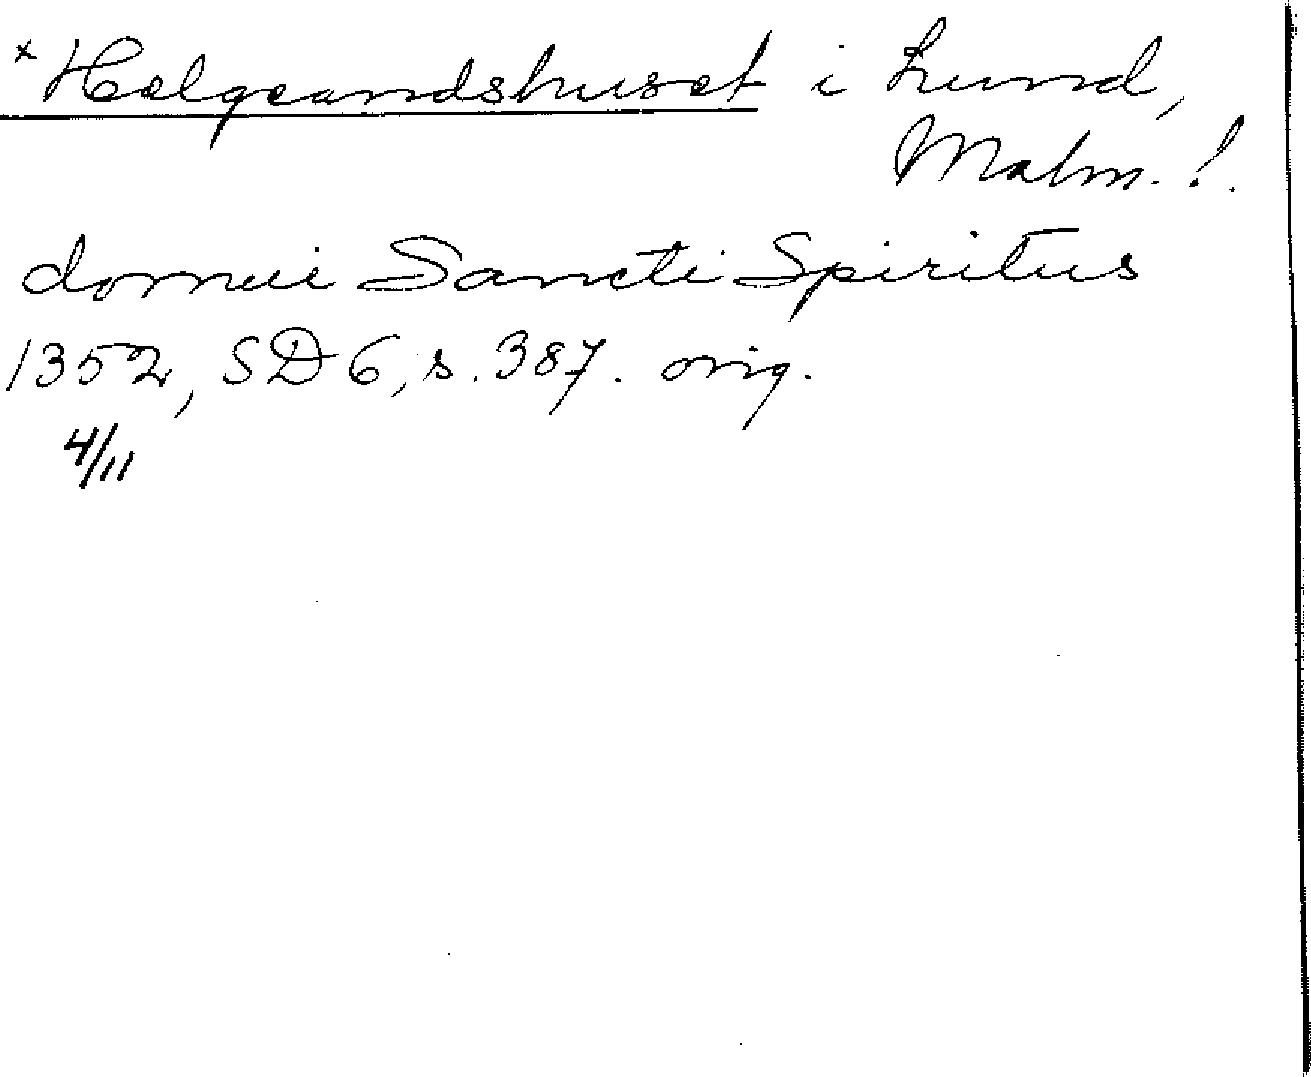 *Helgeandshuset i Lund,
Malm. l.
domui Sancti Spiritus
1352, SD 6, s. 387. orig.
4/11